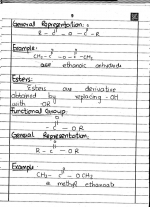 General Representation:
O O
R - C - O - C - R
Example:
O O
CH₃ - C - O - C - CH₃
ethanoic anhydride
Esters:
Esters are derivative
obtained by replacing -OH
with -OR
Functional Group:
O
- C - OR
General Representation:
O
R - C - OR
Example:
O
CH₃ - C - OCH₃
methyl ethanoate